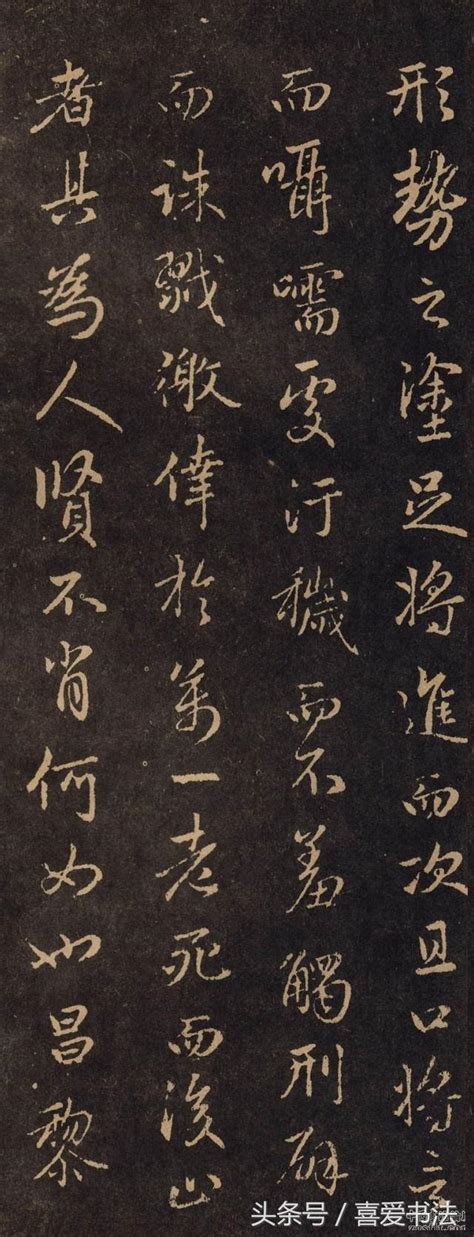 形勢之塗足將進而次且口將言
而囁嚅處汙穢而不羞觸刑辟
而誅戮徼倖於萬一老死而後止
者其為人賢不肖何如也昌黎
头条号 / 喜爱书法